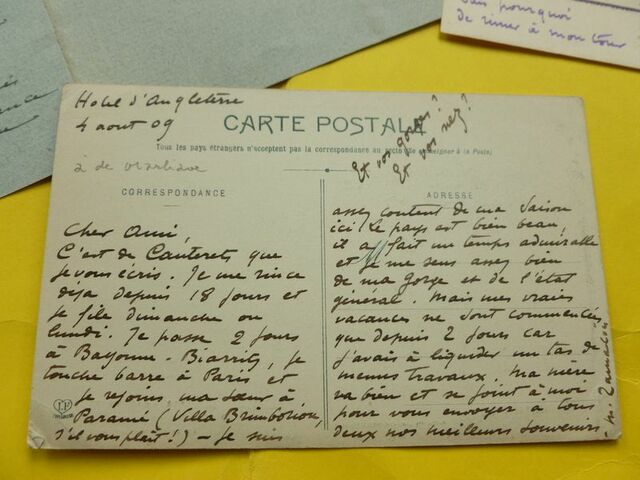 sans pourquoi
de rimer à mon tour
Hotel d'Angleterre
4 aout 09
CARTE POSTALE
Tous les pays étrangers n'acceptent pas la correspondance au recto (Se renseigner à la Poste)
Et vos gorges?
Et vos nez?
à de
CORRESPONDANCE
ADRESSE
Cher Ami,
C'est de Cauterets que
je vous écris. Je me rince
déjà depuis 18 jours et
je file dimanche ou
lundi. Je passe 2 jours
à Bayonne-Biarritz, je
touche barre à Paris et
je rejoins ma sœur à
Paramé (Villa Brimborion,
s'il vous plaît!) - Je suis
assez content de ma saison
ici. Le pays est bien beau,
il a fait un temps admirable
et je me sens assez bien
de ma gorge et de l'état
général. Mais mes vraies
vacances ne sont commencées
que depuis 2 jours car
j'avais à liquider un tas de
menus travaux. Ma mère
va bien et se joint à moi
pour vous envoyer à tous
deux nos meilleurs souvenirs.